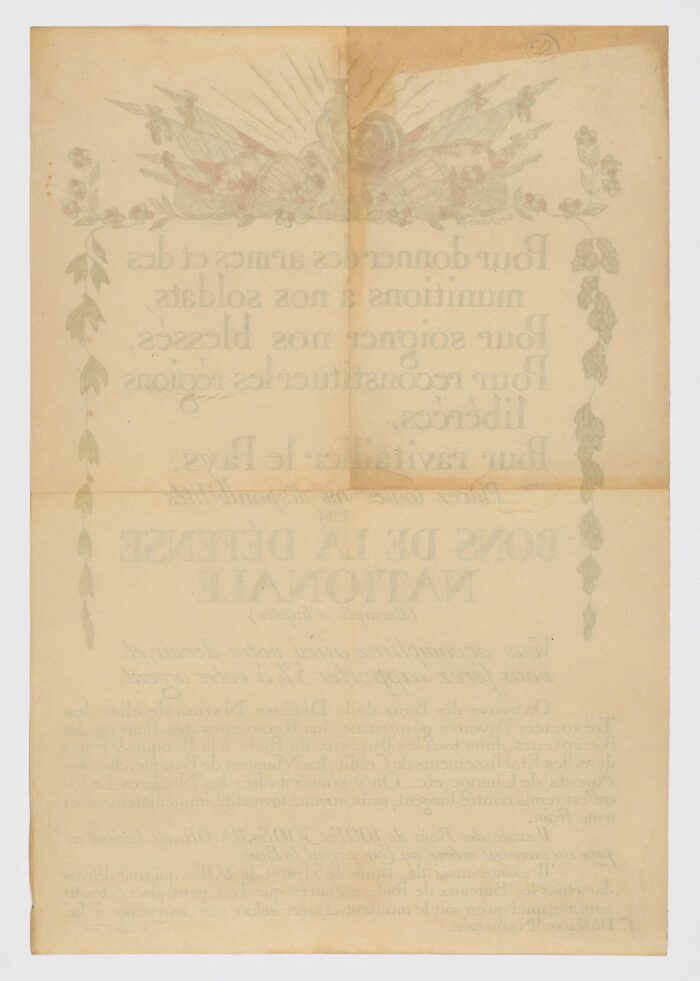 52
Pour donner des armes et des
munitions à nos soldats,
Pour soigner nos blessés,
Pour reconstituer les régions
libérées,
Pour ravitailler le Pays,
Placez toutes vos disponibilités
EN
BONS DE LA DÉFENSE
NATIONALE
(Exempts d'Impôts)
Vous accomplirez ainsi votre devoir, et
vous ferez rapporter 5% à votre argent.
On trouve des Bons de la Défense Nationale chez les
Trésoriers Payeurs généraux, les Receveurs des Finances, les
Percepteurs, dans tous les Bureaux de Poste, à la Banque de France,
dans les Etablissements de Crédit, les Maisons de Banque, chez les
Agents de Change, etc... On y souscrit chez les Notaires. Le ti-
tre est remis contre l'argent, sans aucune formalité, immédiatement et
sans frais.
Il existe des Bons de 100 Frs, 500 Frs, 1000 Frs, etc. l'intérêt
payé au moment même où l'on prend le Bon.
Il existe aussi des Bons de 5 Frs et de 20 Frs, qui sont délivrés
dans tous les Bureaux de Poste, en sorte que l'on peut placer toute
somme, quelqu'en soit le montant et aider selon ses moyens à la
Défense Nationale.